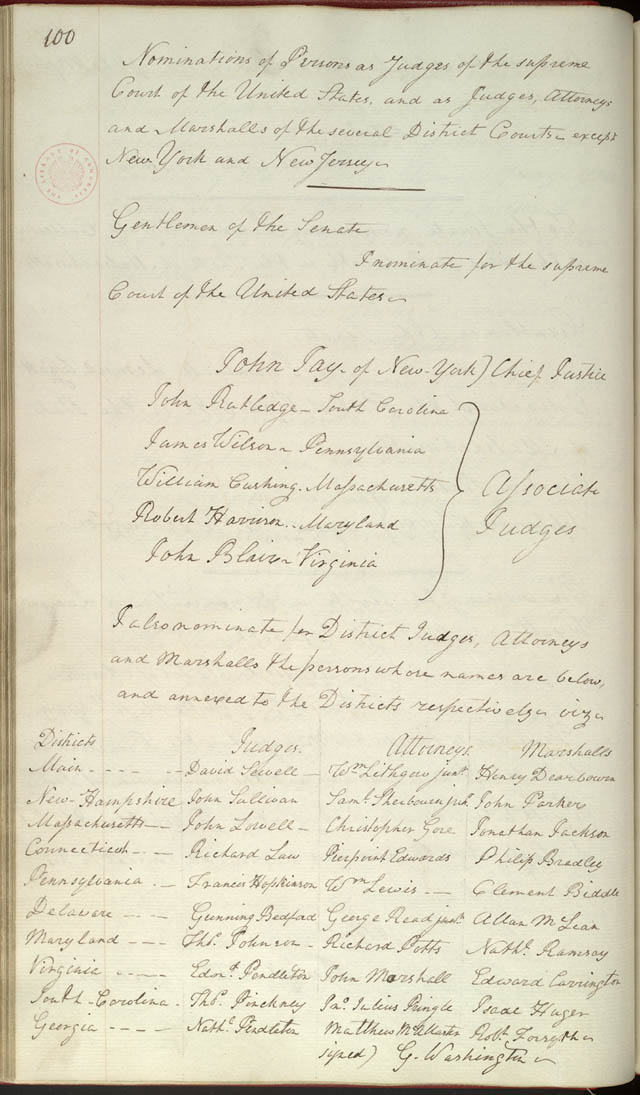 100
Nominations of Persons as Judges of the supreme
Court of the United States, and as Judges, Attorneys
and Marshalls of the several District Courts except
New York and New Jersey
THE LIBRARY OF CONGRESS
Gentlemen of the Senate
I nominate for the supreme
Court of the United States
John Jay of New-York) Chief Justice
John Rutledge - South Carolina
James Wilson - Pennsylvania
William Cushing. Massachusetts
Robert Harrison. Maryland
John Blair - Virginia
Associate
Judges
I also nominate for District Judges, Attorneys
and Marshalls the persons whose names are below,
and annexed to the Districts respectively viz
Districts Judges. Attorneys. Marshalls
Main - - - - David Sewell - Wm Lithgow junr. Henry Dearbourn
New-Hampshire John Sullivan Saml. Sherbourn jr. John Parker
Massachusetts - John Lowell - Christopher Gore Jonathan Jackson
Connecticut - - Richard Law Pierpoint Edwards Philip Bradley
Pennsylvania - Francis Hopkinson Wm Lewis - - Clement Biddle
Delaware - - - Gunning Bedford George Read junr. Allan McLean
Maryland - - - Tho. Johnson - Richard Potts Nathl. Ramsay
Virginia - - - - Edmd. Pendleton John Marshall Edward Carrington
South-Carolina - Tho. Pinckney Jno. Julius Pringle Isaac Huger
Georgia - - - - Nathl. Pendleton Matthew McAllister Robt. Forsyth
signed) G. Washington